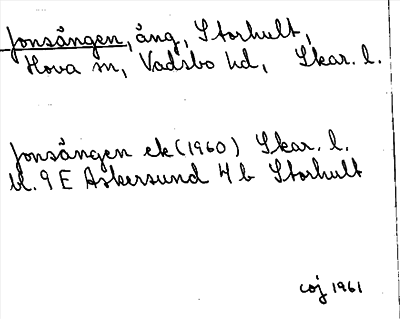 Jonsängen, äng, Storhult,
Hova sn, Vadsbo hd, Skar. l.
Jonsängen ek (1960) Skar. l.
bl. 9 E Askersund 4 b Storhult
coj 1961